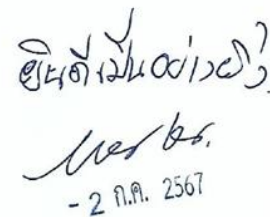 ยินดีเป็นอย่างยิ่ง
- 2 ก.ค. 2567